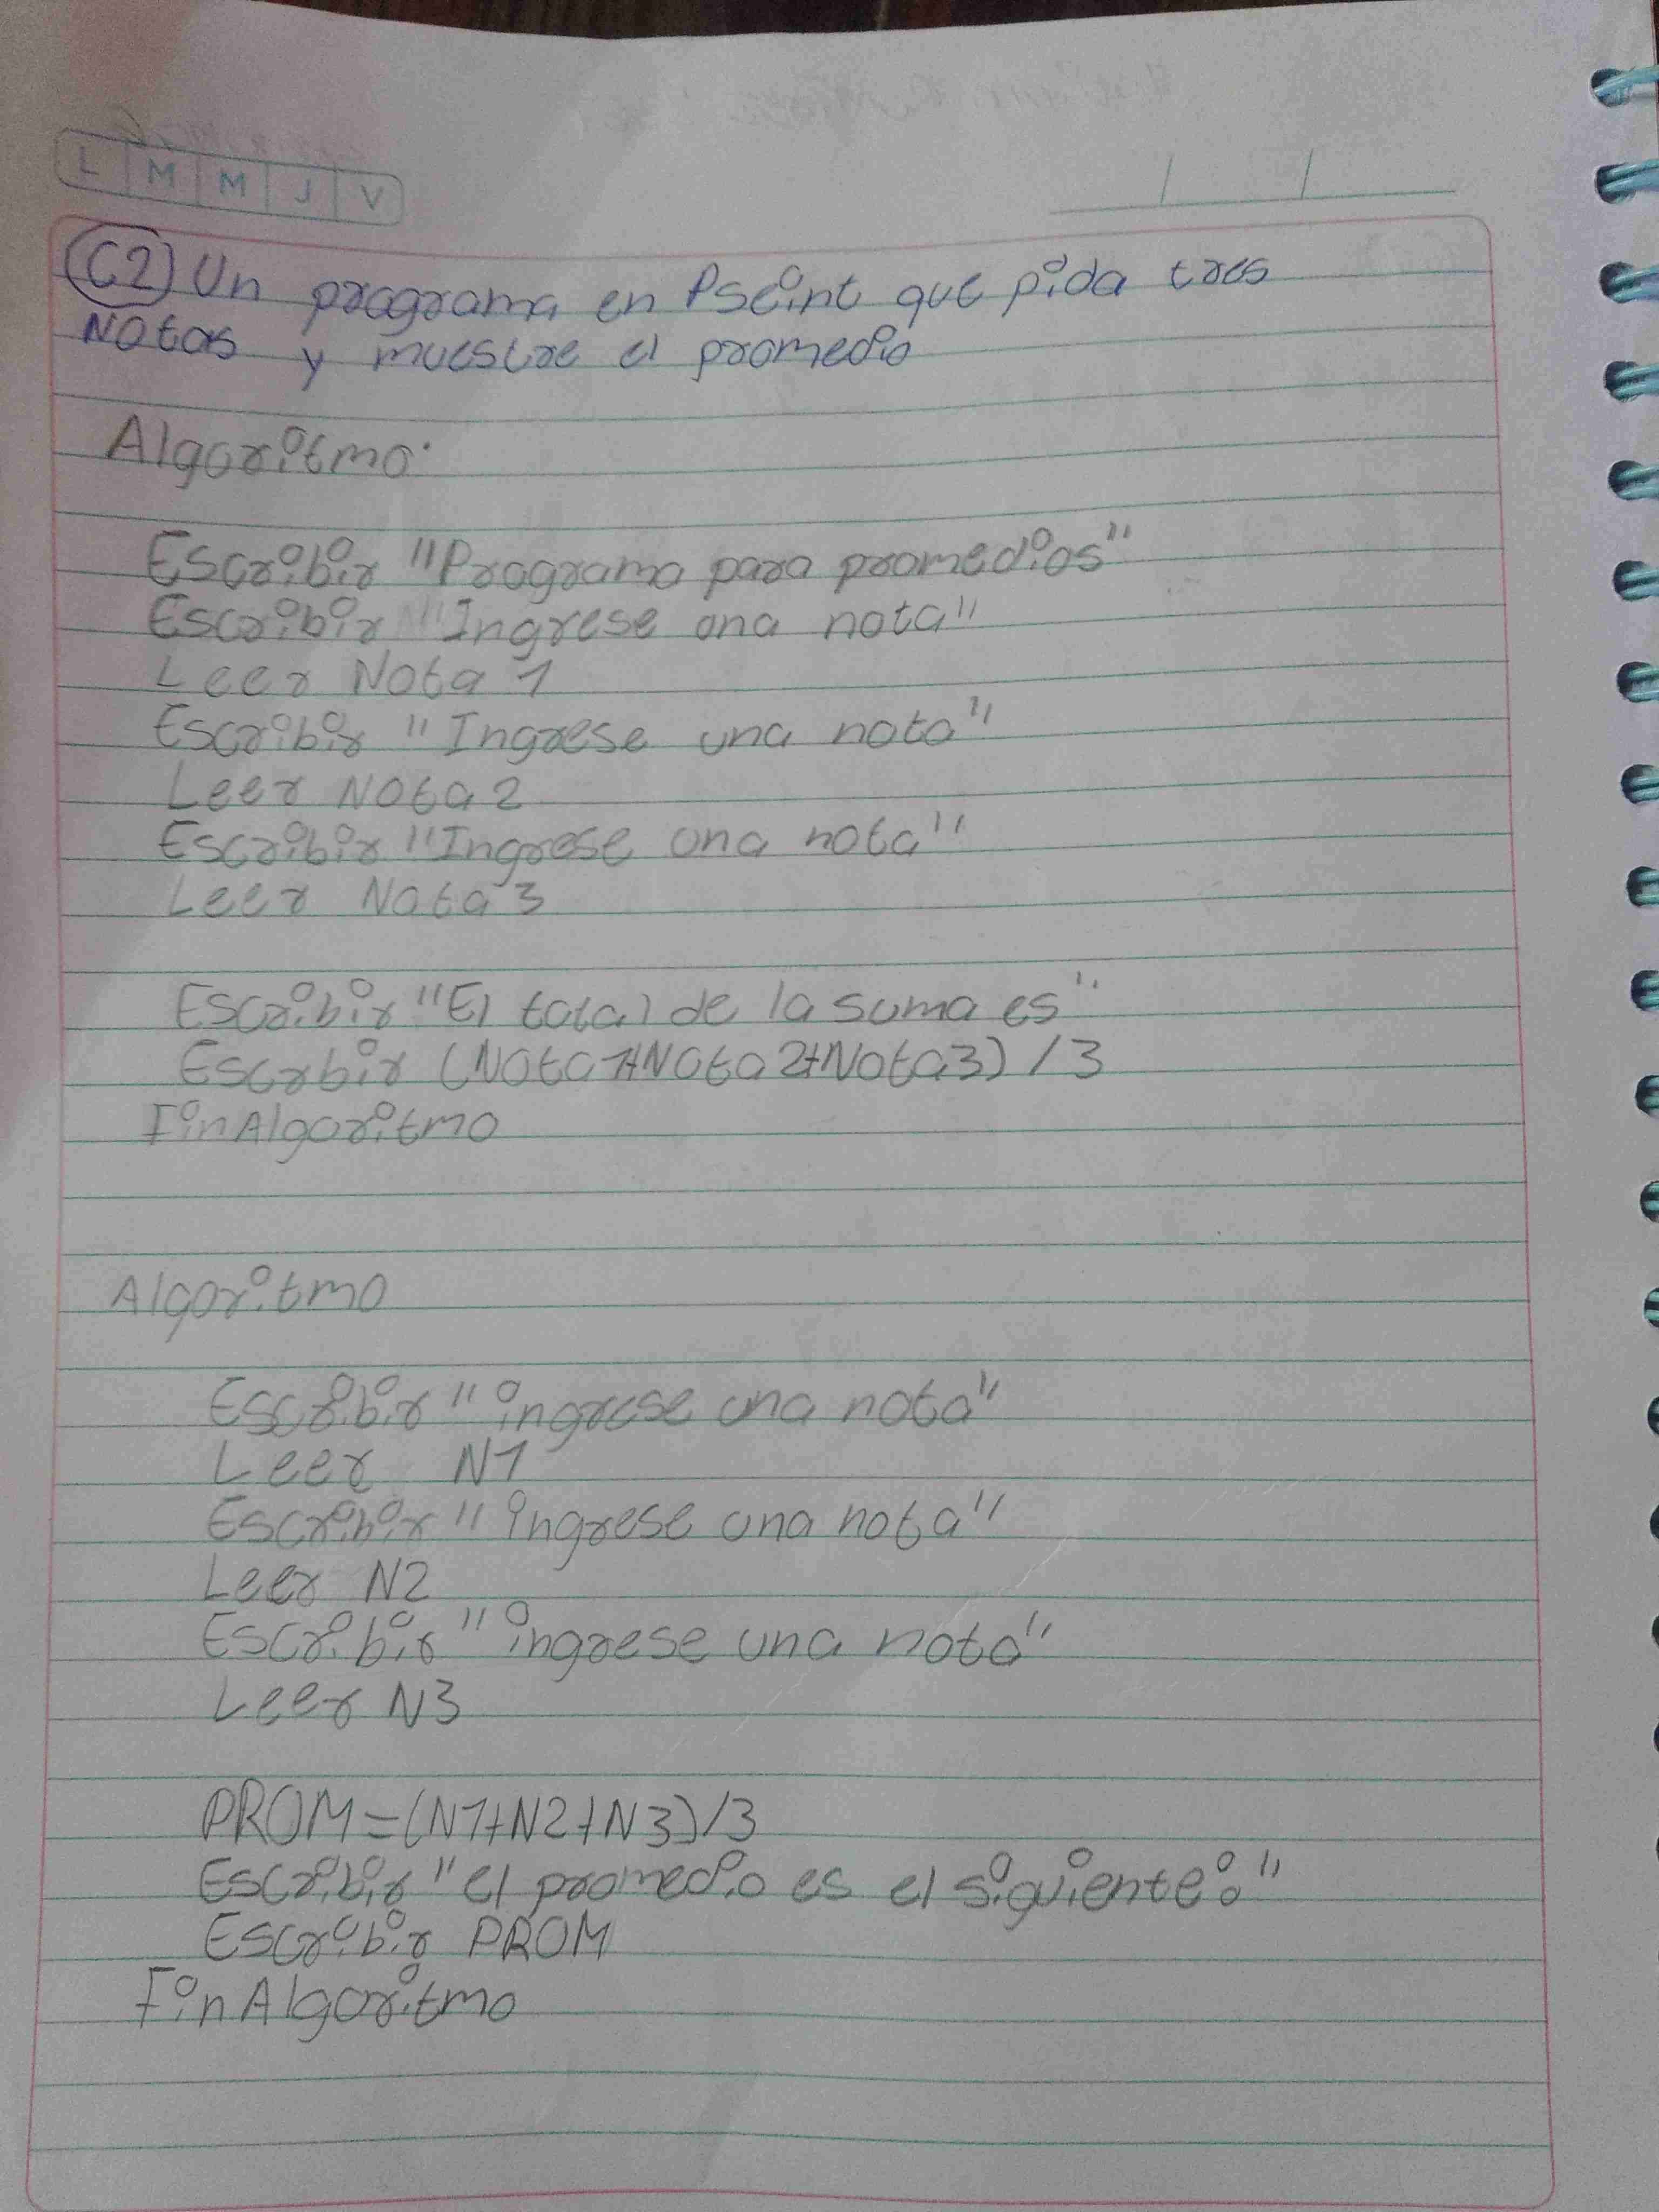 L M M J V
C2) Un programa en Pseint que pida tres
Notas y muestre el promedio
Algoritmo
Escribir "Programa para promedios"
Escribir "Ingrese una nota"
Leer Nota 1
Escribir "Ingrese una nota"
Leer Nota 2
Escribir "Ingrese una nota"
Leer Nota 3
Escribir "El total de la suma es"
Escrbir (Nota1+Nota2+Nota3) / 3
FinAlgoritmo
Algoritmo
Escribir "ingrese una nota"
Leer N1
Escribir "ingrese una nota"
Leer N2
Escribir "ingrese una nota"
Leer N3
PROM=(N1+N2+N3)/3
Escribir "el promedio es el siguiente:"
Escribir PROM
FinAlgoritmo